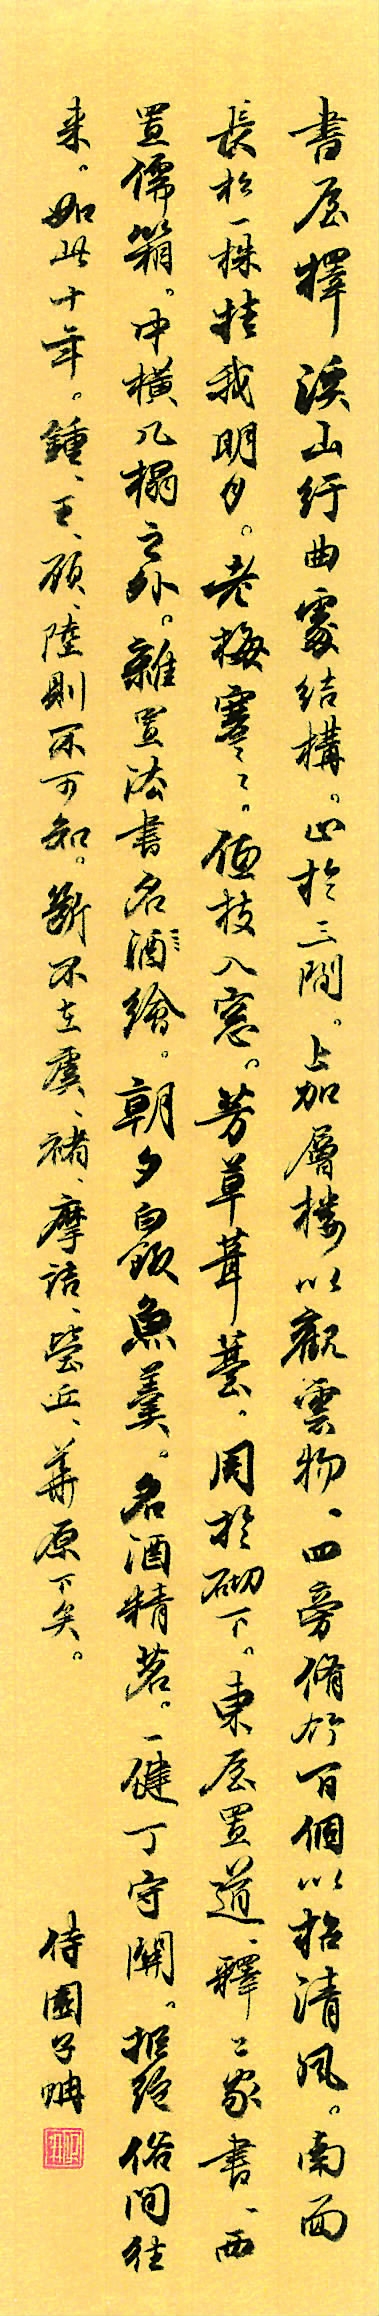 書屋擇溪山行曲處結構。止於三間。上加層樓以觀雲物、四旁脩竹百個以招清風。南面
長松一株挂我明月。老梅蹇〻。低枝入窓。芳草葺蕓。周於砌下。東屋置道、釋二家書、西
置儒箱。中橫几榻之外。雜置法書名酒繪。朝夕白飯魚羹。名酒精茗。一健丁守關。拒絶俗間往
来。如此十年。鍾、王、顧、陸則不可知。斷不在虞、褚、摩詰、營丘、華原下矣。
侍園子